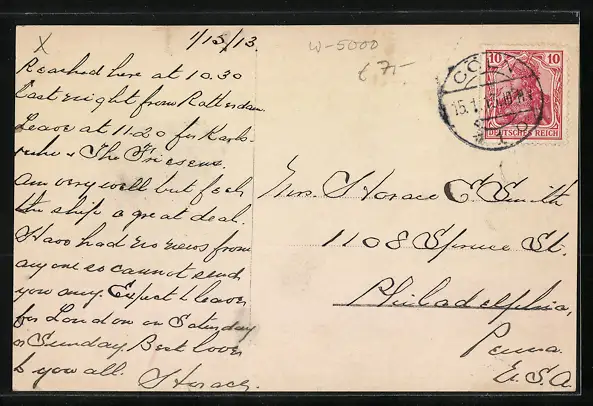 X
1/15/13.
W-5000
€ 75-
Reached here at 10.30
last night from Rotterdam.
Leave at 11.20 for Karls-
ruhe & The Friesens.
Am very well but feel
the ship a great deal.
Have had no news from
any one so cannot send
you any. Expect to leave
for London on Saturday
or Sunday. Best love
to you all.
Horace.
10 10
DEUTSCHES REICH
CÖLN
15.1.13.10-11V
Mrs. Horace E. Smith
1108 Spruce St.
Philadelphia,
Penna.
U.S.A.